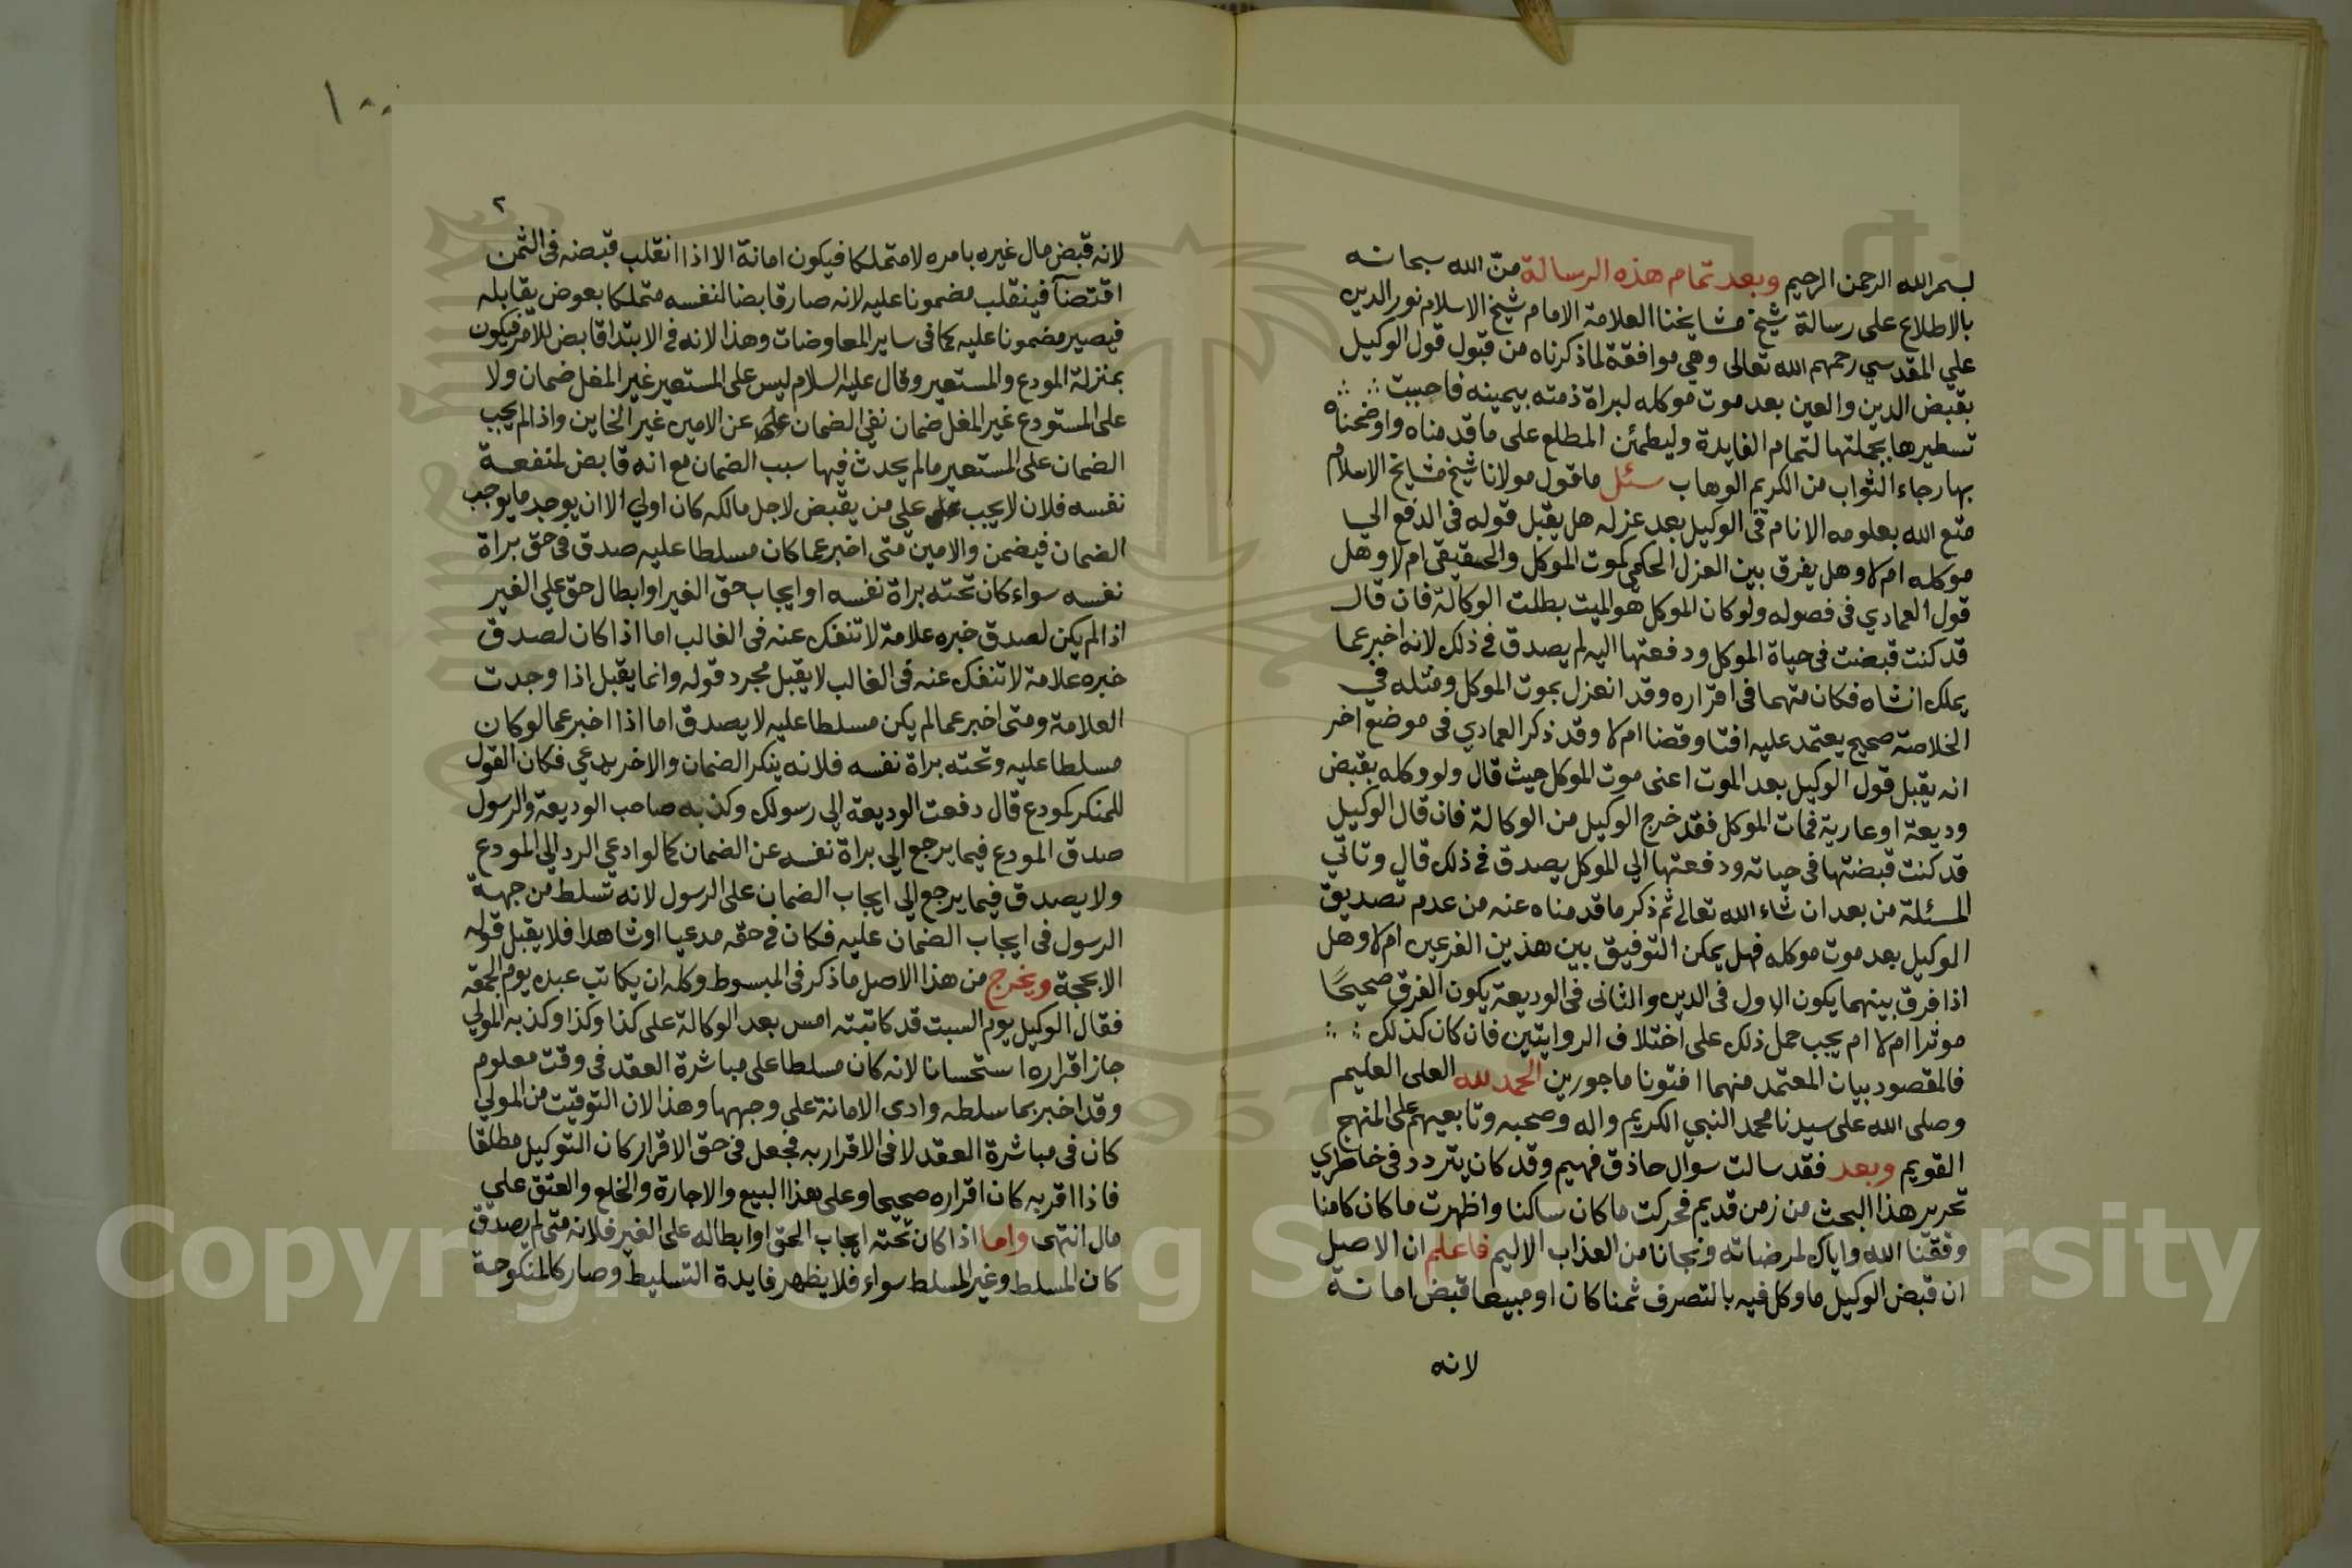 بسم الله الرحمن الرحيم وبعد تمام هذه الرسالة منّ الله سبحانه
بالاطلاع على رسالة شيخ مشايخنا العلامة الامام شيخ الاسلام نور الدين
علي المقدسي رحمهم الله تعالى وهي موافقة لما ذكرناه من قبول قول الوكيل
بقبض الدين والعين بعد موت موكله لبراة ذمته بيمينه فاحببت
تسطيرها بجملتها لتمام الفايدة وليطمئن المطلع على ما قدمناه واوضحناه
بها رجاء الثواب من الكريم الوهاب سئل ما قول مولانا شيخ مشايخ الاسلام
متع الله بعلومه الانام في الوكيل بعد عزله هل يقبل قوله في الدفع الي
موكله ام لا وهل يفرق بين العزل الحكمي كموت الموكل والحقيقي ام لا وهل
قول العمادي في فصوله ولو كان الموكل هو الميت بطلت الوكالة فان قال
قد كنت قبضت في حياة الموكل ودفعتها اليه لم يصدق في ذلك لانه اخبر عما
يملك انشاه فكان متهما في اقراره وقد انعزل بموت الموكل ومثله في
الخلاصة صحيح يعتمد عليه افتا وقضا ام لا وقد ذكر العمادي في موضع اخر
انه يقبل قول الوكيل بعد الموت اعني موت الموكل حيث قال ولو وكله بقبض
وديعة او عارية فمات الموكل فقد خرج الوكيل من الوكالة فان قال الوكيل
قد كنت قبضتها في حياته ودفعتها الي الموكل يصدق في ذلك قال وتاتي
المسئلة من بعد ان شاء الله تعالى ثم ذكر ما قدمناه عنه من عدم تصديق
الوكيل بعد موت موكله فهل يمكن التوفيق بين هذين الفرعين ام لا وهل
اذا فرق بينهما يكون الاول في الدين والثاني في الوديعة يكون الفرق صحيحًا
موثرا ام لا ام يجب حمل ذلك على اختلاف الروايتين فان كان كذلك
فالمقصود بيان المعتمد منهما افتونا ماجورين الحمد لله العلي العليم
وصلى الله على سيدنا محمد النبي الكريم واله وصحبه وتابعيهم على المنهج
القويم وبعد فقد سالت سوال حاذق فهيم وقد كان يتردد في خاطري
تحرير هذا البحث من زمن قديم فحركت ما كان ساكنا واظهرت ما كان كامنا
وفقنا الله واياك لمرضاته ونجانا من العذاب الاليم فاعلم ان الاصيل
ان قبض الوكيل ما وكل فيه بالتصرف ثمنا كان او مبيعا قبض امانة
لانه
١٠٠
٢
لانه قبض مال غيره بامره لا متملكا فيكون امانة الا اذا انقلب قبضه في الثمن
اقتضآ فينقلب مضمونا عليه لانه صار قابضا لنفسه متملكا بعوض يقابله
فيصير مضمونا عليه كما في ساير المعاوضات وهذا لانه في الابتدا قابض للامر فيكون
بمنزلة المودع والمستعير وقال عليه السلام ليس على المستعير غير المغل ضمان ولا
على المستودع غير المغل ضمان نفي الضمان عن الامين غير الخاين واذا لم يجب
الضمان على المستعير ما لم يحدث فيها سبب الضمان مع انه قابض لمنفعة
نفسه فلان لا يجب علي من يقبض لاجل مالكه كان اولي الا ان يوجد ما يوجب
الضمان فيضمن والامين متى اخبر عما كان مسلطا عليه صدق في حق براة
نفسه سواء كان تحته براة نفسه او ايجاب حق الغير او ابطال حق علي الغير
اذا لم يكن لصدق خبره علامة لا تنفك عنه في الغالب اما اذا كان لصدق
خبره علامة لا تنفك عنه في الغالب لا يقبل مجرد قوله وانما يقبل اذا وجدت
العلامة ومتى اخبر عما لم يكن مسلطا عليه لا يصدق اما اذا اخبر عما لو كان
مسلطا عليه وتحته براة نفسه فلانه ينكر الضمان والاخر يدعي فكان القول
للمنكر كمودع قال دفعت الوديعة الى رسولك وكذبه صاحب الوديعة والرسول
صدق المودع فيما يرجع الي براة نفسه عن الضمان كما لو ادعي الرد الي المودع
ولا يصدق فيما يرجع الي ايجاب الضمان على الرسول لانه تسلط من جهة
الرسول في ايجاب الضمان عليه فكان في حقه مدعيا او شاهدا فلا يقبل قوله
الا بحجة ويخرج من هذا الاصل ما ذكر في المبسوط وكله ان يكاتب عبده يوم الجمعه
فقال الوكيل يوم السبت قد كاتبته امس بعد الوكالة على كذا وكذا وكذبه المولي
جاز اقراره استحسانا لانه كان مسلطا على مباشرة العقد في وقت معلوم
وقد اخبر بما سلطه وادى الامانة على وجهها وهذا لان التوقيت من المولي
كان في مباشرة العقد لا في الاقرار به فجعل في حق الاقرار كان التوكيل مطلقا
فاذا اقر به كان اقراره صحيحا وعلى هذا البيع والاجارة والخلع والعتق علي
مال انتهى واما اذا كان تحته ايجاب الحق او ابطاله على الغير فلانه متى لم يصدق
كان المسلط وغير المسلط سواء فلا يظهر فايدة التسليط وصار كالمنكوحة
Copyright © King Saud University
1957